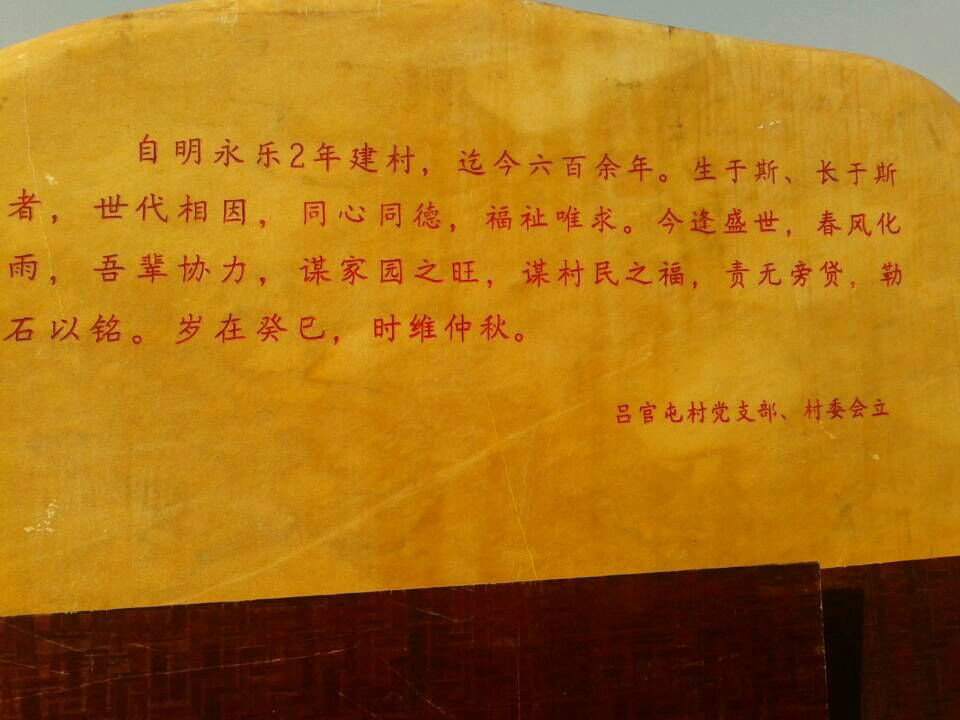 自明永乐2年建村，迄今六百余年。生于斯、长于斯
者，世代相因，同心同德，福祉唯求。今逢盛世，春风化
雨，吾辈协力，谋家园之旺，谋村民之福，责无旁贷，勒
石以铭。岁在癸巳，时维仲秋。
吕官屯村党支部、村委会立